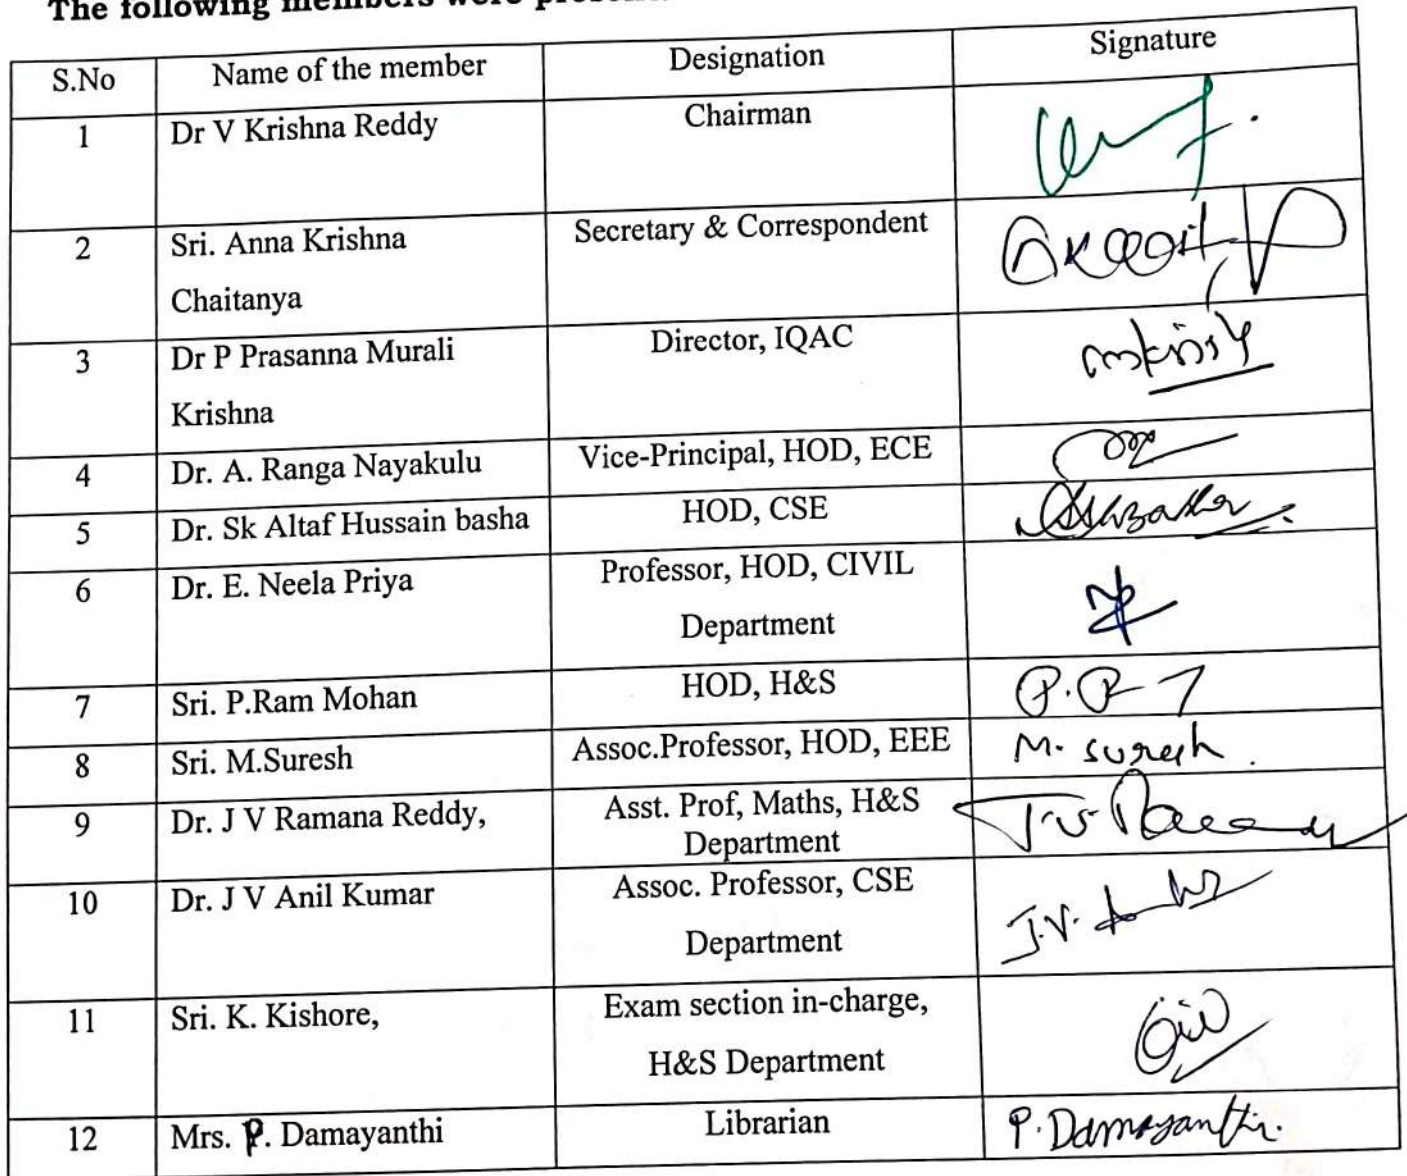 The following members were present
S.No Name of the member Designation Signature
1 Dr V Krishna Reddy Chairman
2 Sri. Anna Krishna Secretary & Correspondent
Chaitanya
3 Dr P Prasanna Murali Director, IQAC
Krishna
4 Dr. A. Ranga Nayakulu Vice-Principal, HOD, ECE
5 Dr. Sk Altaf Hussain basha HOD, CSE
6 Dr. E. Neela Priya Professor, HOD, CIVIL
Department
7 Sri. P.Ram Mohan HOD, H&S
8 Sri. M.Suresh Assoc.Professor, HOD, EEE M. Suresh.
9 Dr. J V Ramana Reddy, Asst. Prof, Maths, H&S
Department
10 Dr. J V Anil Kumar Assoc. Professor, CSE J.V.
Department
11 Sri. K. Kishore, Exam section in-charge,
H&S Department
12 Mrs. P. Damayanthi Librarian P. Damayanthi.